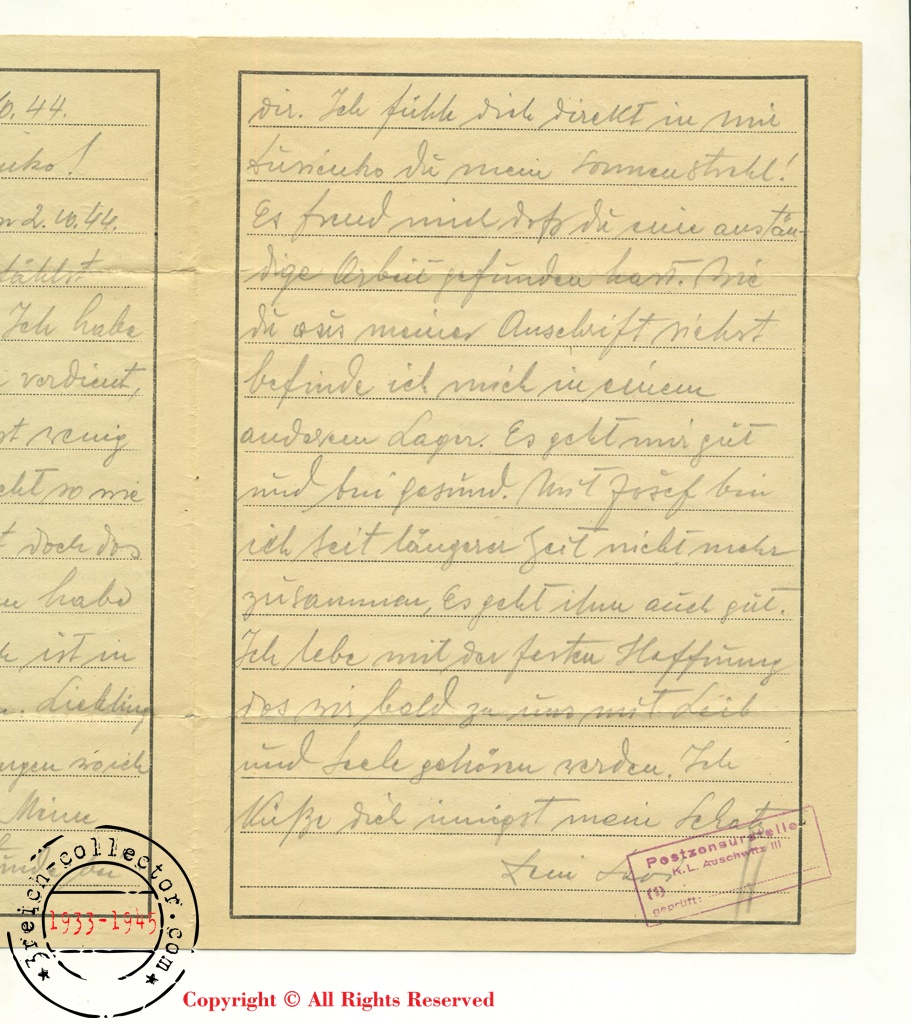 10.44.
enko!
2.10.44.
Ich habe
verdient,
wenig
so wie
doch das
habe
ist in
Liebling
Meine
dir. Ich fühle dich direkt in mir
du mein Sonnenstrahl!
Es freud mich daß du eine anstän-
dige Arbeit gefunden hast. Wie
du aus meiner Anschrift siehst
befinde ich mich in einem
anderen Lager. Es geht mir gut
und bin gesund. Mit Josef bin
ich seit längerer Zeit nicht mehr
zusammen, Es geht ihm auch gut.
Ich lebe mit der festen Hoffnung
das wir bald zu uns mit Leib
und Seele gehören werden. Ich
Küße dich innigst mein Schatz
Dein
Postzensurstelle
K.L. Auschwitz III
(1)
geprüft:
3reich-collector.com
1933-1945
Copyright © All Rights Reserved